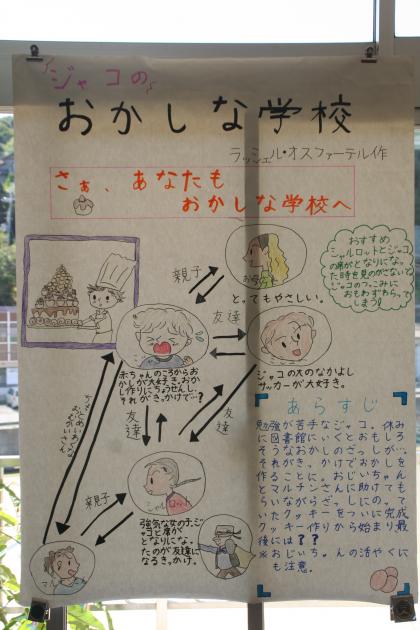 ジャコの
おかしな学校
ラッシェル・オスファーテル作
さぁ、あなたも
おかしな学校へ
おすすめ
シャルロットとジャコ
の席がとなりになっ
た時を見のがさないで
ジャコのつっこみに
おもわずわらっ
てしまう!
親子
お母さん
とってもやさしい。
友達
赤ちゃんのころからお
かしが大好き。おか
し作りにちょうせんし、
それがきっかけで…?
ジャコの大のなかよし
サッカーが大好き。
友達
友達
親子
強気な女の子。ジ
ャコと席が
となりにな
たのが友達に
なるきっかけ。
マル
あらすじ
勉強が苦手なジャコ。休み
に図書館にいくとおもしろ
そうなおかしのざっしが…
それがきっかけでおかしを
作ることに。おじいちゃん
とマルチンさんに助けても
らいながらざっしにのって
いたクッキーをついに完成
クッキー作りから始まり最
後には??
※おじいちゃんの活やくに
も注意。